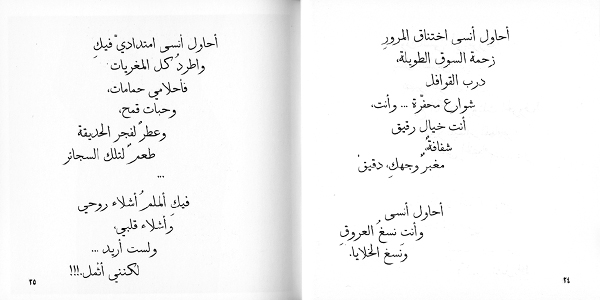 أحاول أنسى اختناق المرورِ
زحمة السوق الطويلة،
درب القوافل
شوارع محفّرة ... وأنت،
أنت خيال رقيق
شفافةٌ،
مغبرٌ وجهكِ، دقيقْ
أحاول أنسى
وأنت نسغُ العروقِ
ونَسغ الخلايا.
٢٤
أحاول أنسى امتداديْ فيكِ
واطردُ كل المغريات
فأحلامي حمامات،
وحبات قمح،
وعطرٌ لفجر الحديقة
طعمٌ لتلك السجائر
...
فيكِ ألملمُ أشلاء روحي
وأشلاء قلبي.
ولست أريد ...
لكنني أثمل.!!!
٢٥